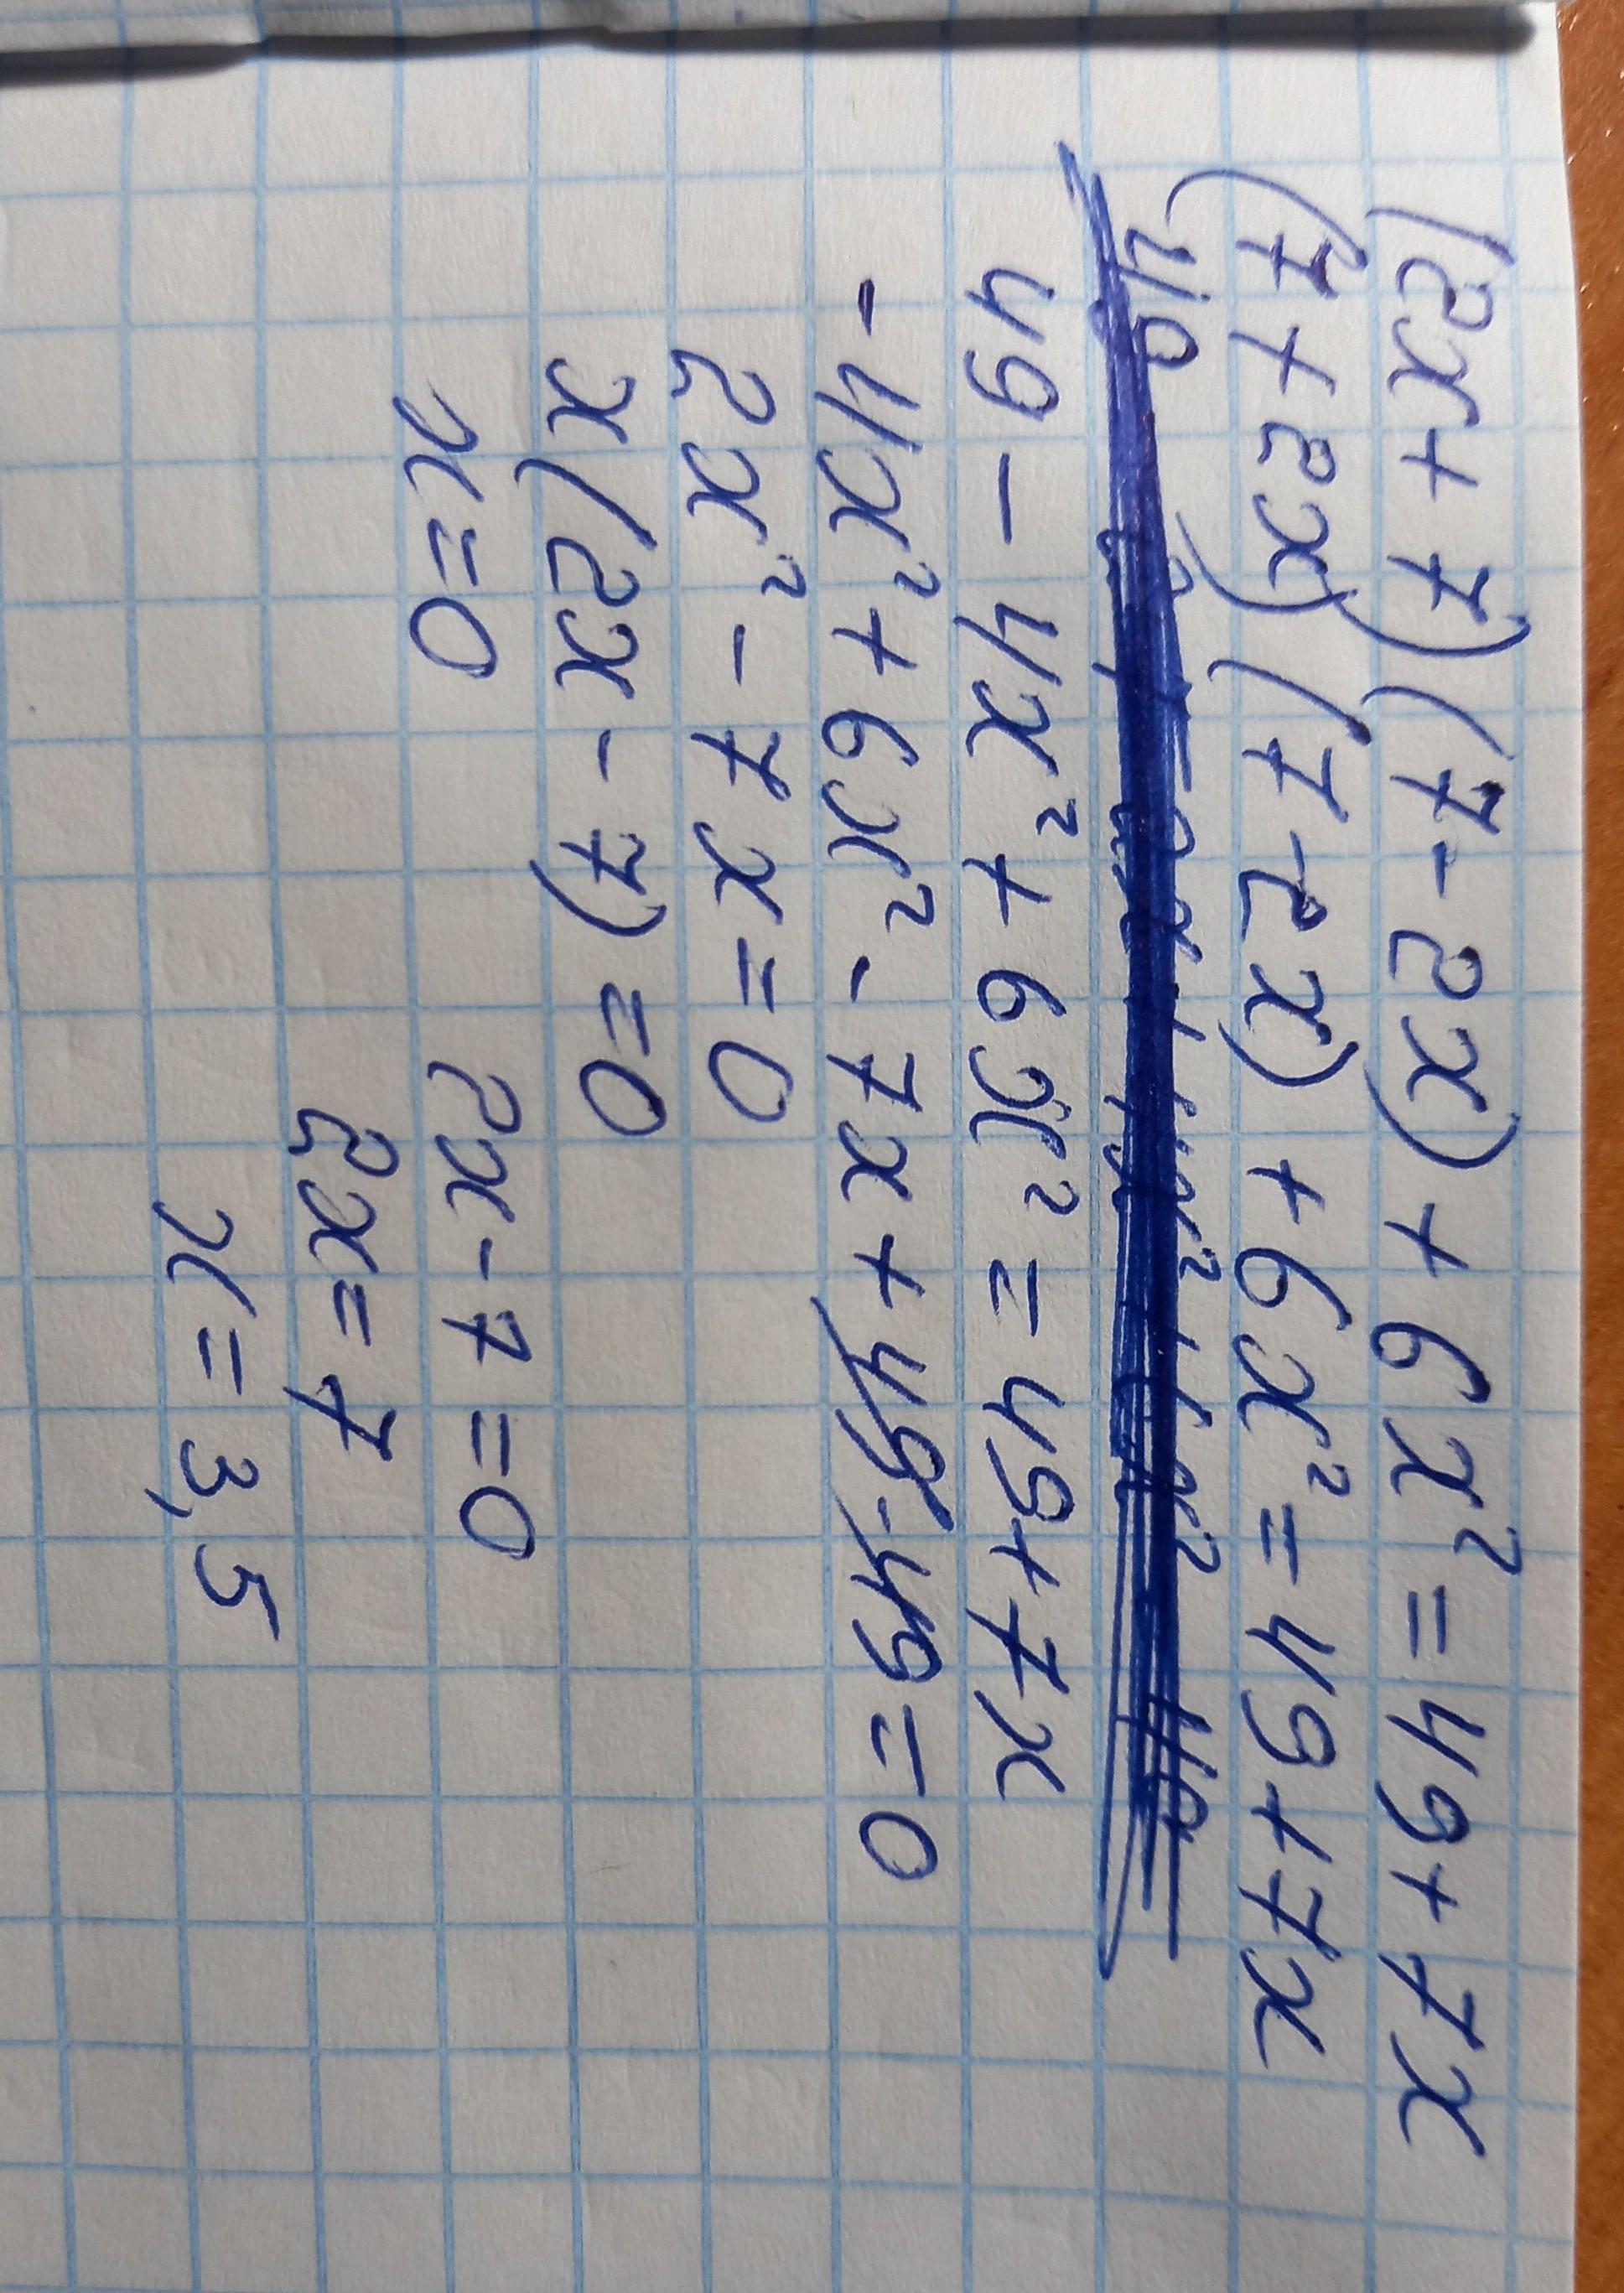 (2x+7)(7-2x)+6x²=49+7x
(7+2x)(7-2x)+6x²=49+7x
49-4x²+6x²=49+7x
-4x²+6x²-7x+49-49=0
2x²-7x=0
x(2x-7)=0
x=0 2x-7=0
2x=7
x=3,5